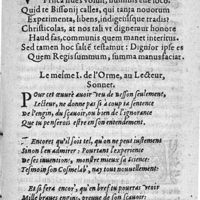 Vinca fides voluit, numinis esse loco.
Quid te Bissoni tales, qui tanta nouorum
Experimenta, libens, indigetúsque tradis?
Christicolas, at nos tali ve dignerur honore
Haud fas, communis quem manet interitus.
Sed tamen hoc saltẽ testamur: Dignior ipse es
Quem Regis summum, summa manus faciat.
Le mesme I. de l'Orme, au Lecteur,
Sonnet.
POur cet œuure auoir veu de Besson seulement,
Lecteur, ne donne pas si à coup ta sentence
De l'engin, du sçauoir, ou bien de l'ignorance
Que tu penserois estre en son entendement.
Encores qu'il soit tel, qu'on ne peut iustement
Sinon s'en admirer: Pourtant l'experience
De ses inuentions, monstre mieux sa science:
Tesmoin son Cosmolab', nay tous nouuellement:
Et si sera encor', qu'en bref tu pourras voir
Mille braues engins, preuue de son sçauoir: